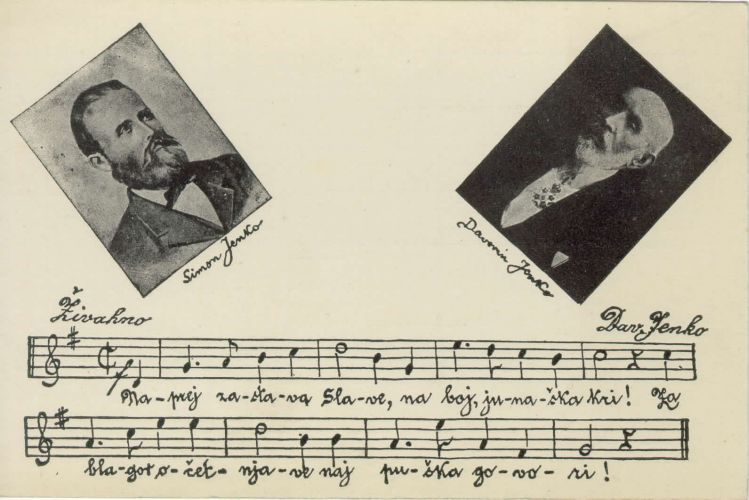 Simon Jenko
Davorin Jenko
Živahno
Dav. Jenko
Na-prej za-sta-va Sla-ve, na boj, ju-na-ška kri! Za
bla-got o-čet-nja-ve naj pu-ška go-vo-ri!